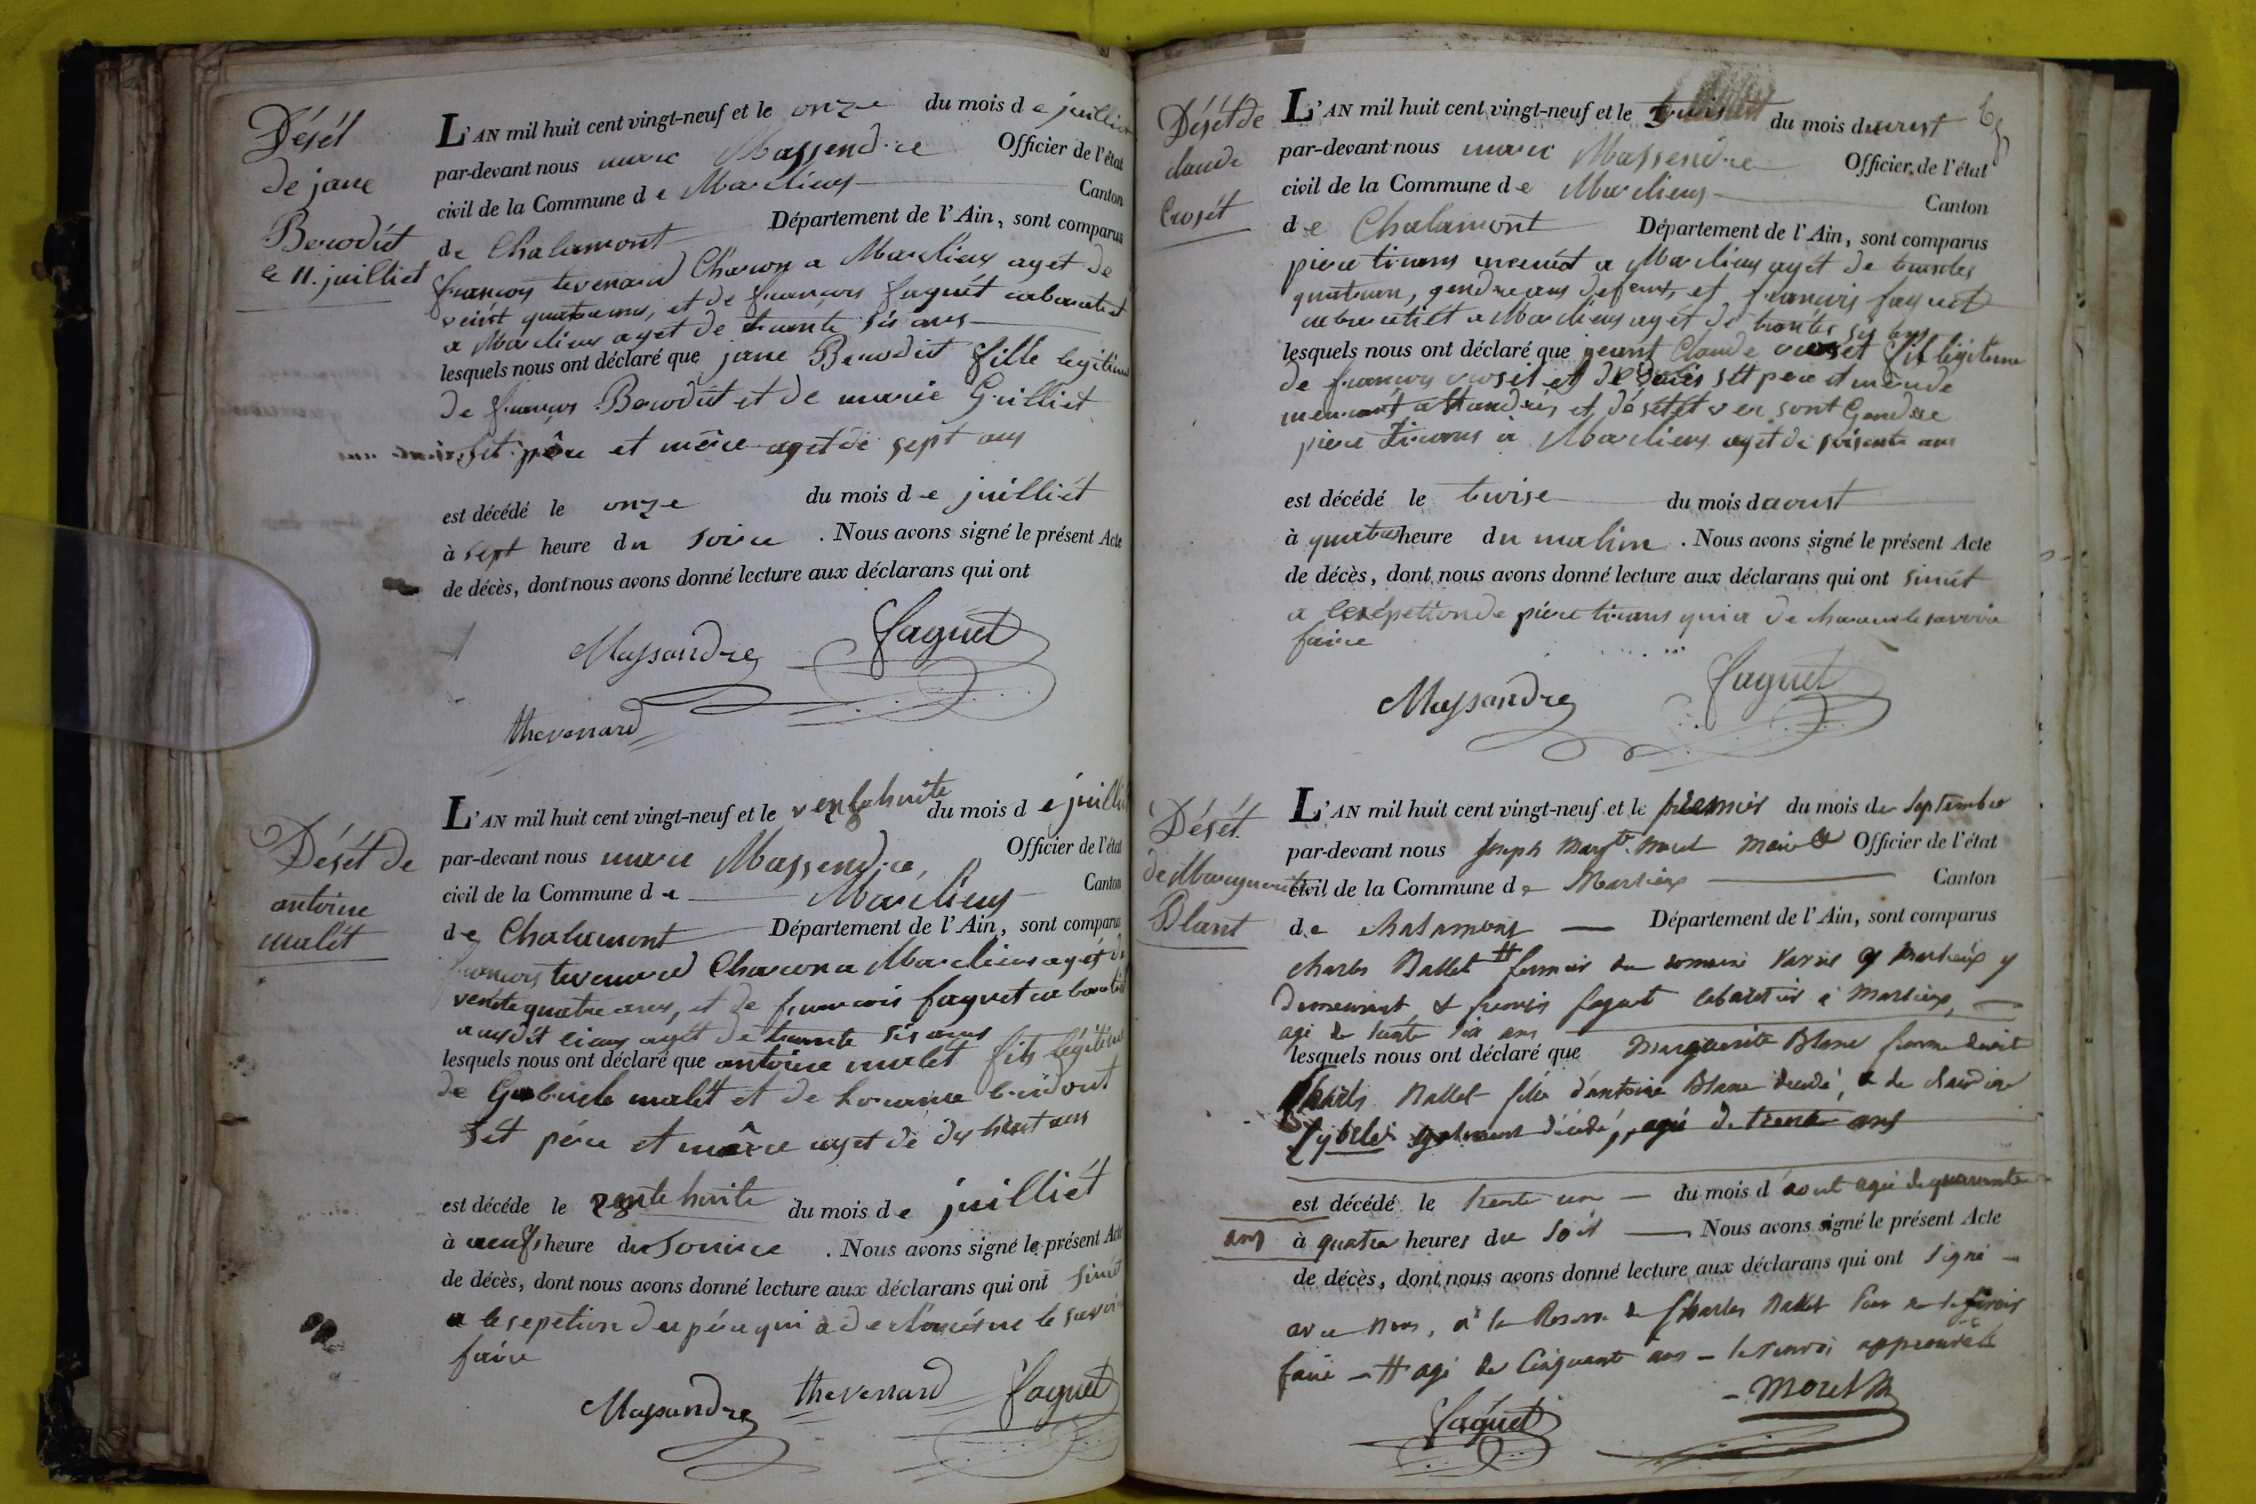 Dését
de jane
Berodiét
le 11. juilliet
L'AN mil huit cent vingt-neuf et le onze du mois d e juilliet
par-devant nous marc Massendre Officier de l'état
civil de la Commune d e Marlieus Canton
de Chalamont Département de l'Ain, sont comparus
françois tevenard Charon a Marlieus aget de
veint quatre ans, et de françois faguét cabaratiet
a Marlieus aget de trante sis ans
lesquels nous ont déclaré que jane Berodiet fille legitime
de françois Berodiet et de marie Guilliet
sét pére et mére aget de sept ans
est décédé le onze du mois d e juilliét
à sept heure du soire . Nous avons signé le présent Acte
de décès, dont nous avons donné lecture aux déclarans qui ont
Massandre faguet
thevenard
Dését de
antoine
malét
L'AN mil huit cent vingt-neuf et le vente huite du mois d e juilliet
par-devant nous marc Massendre, Officier de l'état
civil de la Commune d e Marlieus Canton
de Chalamont Département de l'Ain, sont comparus
françois tevenard Charon a Marlieus agét de
vente quatre ans, et de francois faguet cabaratiet
audit lieus agét de trante sis ans
lesquels nous ont déclaré que antoine malét fils légitime
de Gabriele malét et de
sét pére et mére aget de dis huit ans
est décéde le vente huite du mois d e juilliét
à neuf heure du Soire . Nous avons signé le présent Acte
de décès, dont nous avons donné lecture aux déclarans qui ont sinét
a lesepetion du pére qui a de claré ne le savoir
faire
Massandre thevenard faguet
Dését de
claude
Crosét
L'AN mil huit cent vingt-neuf et le treise du mois daoust
par-devant nous marc Massendre Officier de l'état
civil de la Commune d e Marlieus Canton
d e Chalamont Département de l'Ain, sont comparus
piere tirans a Marlieus agét de
quatre ans, gendre aus defeunt, et françois faguet
cabaratiét a Marlieus aget de trante sis ans
lesquels nous ont déclaré que Claude crosét fils légitime
de françois crosét et de sét pere et mere de
et déséde ché sont Gendre
piere Tirans a Marlieus aget de soisente ans
est décédé le treise du mois daoust
à quatre heure du matin . Nous avons signé le présent Acte
de décès, dont nous avons donné lecture aux déclarans qui ont sinét
a lexepetion de piere tirans qui a de claré ne le savoir
faire
Massandre faguet
Dését
de Marguerite
Blant
L'AN mil huit cent vingt-neuf et le premier du mois de Septembre
par-devant nous Joseph Morel Maire & Officier de l'état
civil de la Commune de Marlieux Canton
de Chalamont Département de l'Ain, sont comparus
Charles Ballet # fermier du domaine à Marlieux y
demeurant & francois faguet Cabaretier à Marlieux,
agé de trente six ans
lesquels nous ont déclaré que Marguerite Blanc femme dudit
Charles Ballet fille d'antoine Blanc décédé, & de Claudine
également décédé, agé de trente ans
est décédé le trente un du mois d'aout agée de quarante
ans à quatre heures du soir Nous avons signé le présent Acte
de décès, dont nous avons donné lecture aux déclarans qui ont signé
avec nous, à la Reserve de Charles Ballet pour ne le savoir
faire # agé de Cinquante ans le renvoi approuvé
Morel
faguet